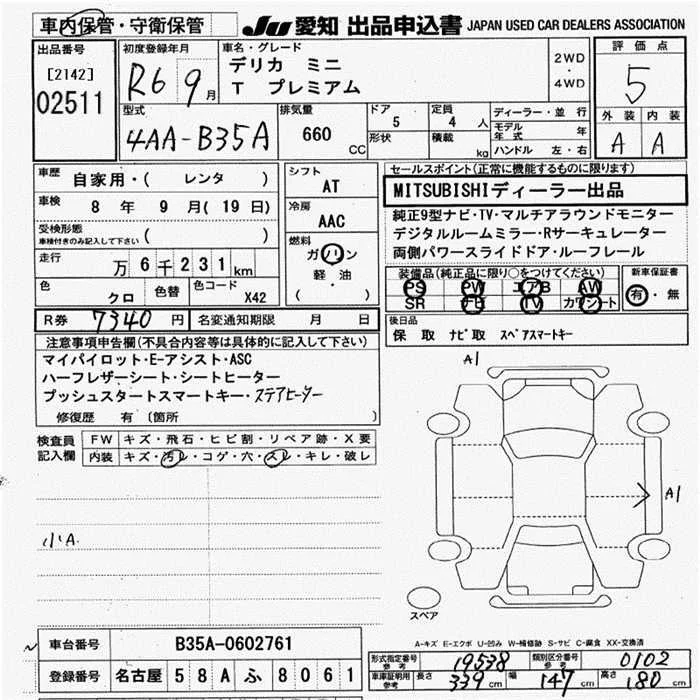 車内保管・守衛保管
JU 愛知 出品申込書 JAPAN USED CAR DEALERS ASSOCIATION
出品番号
[2142]
02511
初度登録年月
R6 9月
車名・グレード
デリカ ミニ
T プレミアム
2WD
・
4WD
評価点
5
外装 内装
A A
型式
4AA-B35A
排気量
660
CC
ドア
5
形状
定員
4 人
積載
kg
ディーラー・並行
モデル年式 年
ハンドル 左・右
車歴 自家用・( レンタ )
車検 8年 9月(19日)
受検形態
車検付きのみ記入して下さい ( )
走行 万6千231km
色 クロ 色替 色コード X42
シフト
AT
冷房
AAC
燃料
ガソリン
軽・油
( )
セールスポイント(正常に機能するものに限ります)
MITSUBISHIディーラー出品
純正9型ナビ・TV・マルチアラウンドモニター
デジタルルームミラー・Rサーキュレーター
両側パワースライドドア・ルーフレール
装備品(純正品に限り○をつけてください)
PS PW エアB AW
SR ナビ TV カワシート
新車保証書
有・無
R券 7340円 名変通知期限 月 日
後日品
保 取 ナビ取 スペアスマートキー
注意事項申告欄(不具合内容等は具体的に記入して下さい)
マイパイロット・E-アシスト・ASC
ハーフレザーシート・シートヒーター
プッシュスタートスマートキー・ステアヒーター
修復歴 有 〔箇所 )
検査員記入欄
FW キズ・飛石・ヒビ割・リペア跡・X要
内装 キズ・汚レ・コゲ・穴・スレ・キレ・破レ
小A
A1
A1
スペア
A-キズ E-エクボ U-凹み W-補修跡 S-サビ C-腐食 XX-交換済
車台番号 B35A-0602761
登録番号 名古屋 58Aふ8061
形式指定番号 参考 19538 類別区分番号 参考 0102
車庫証明用 参考 長さ 339cm 幅 147cm 高さ 180cm